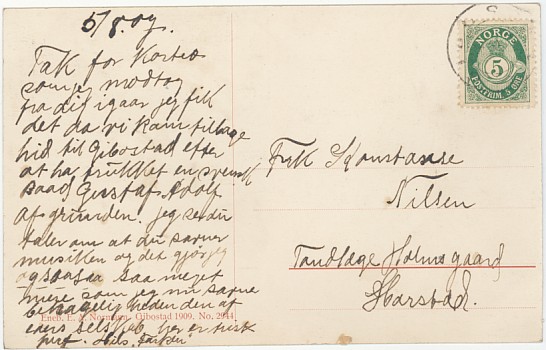 5/8.09.
Tak for Kortet
som jeg modtog
fra dig igaar jeg fik
det da vi kom tilbage
hid til Gibostad efter
at ha trukket en svensk
Gustaf Adolf
af grunden. jeg ser du
taler om at du savner
musikken og det gjør jeg
ogsaa saa meget
mere som jeg nu savne
behagelig heden den af
eders selskab her er trist
NORGE
5
POSTFRIM. 5 ØRE
Frk Konstanse
Nilsen
Tandlæge Holmsgaard
Harstad.
Eneb. E. A. Normann. Gibostad 1909. No. 2944